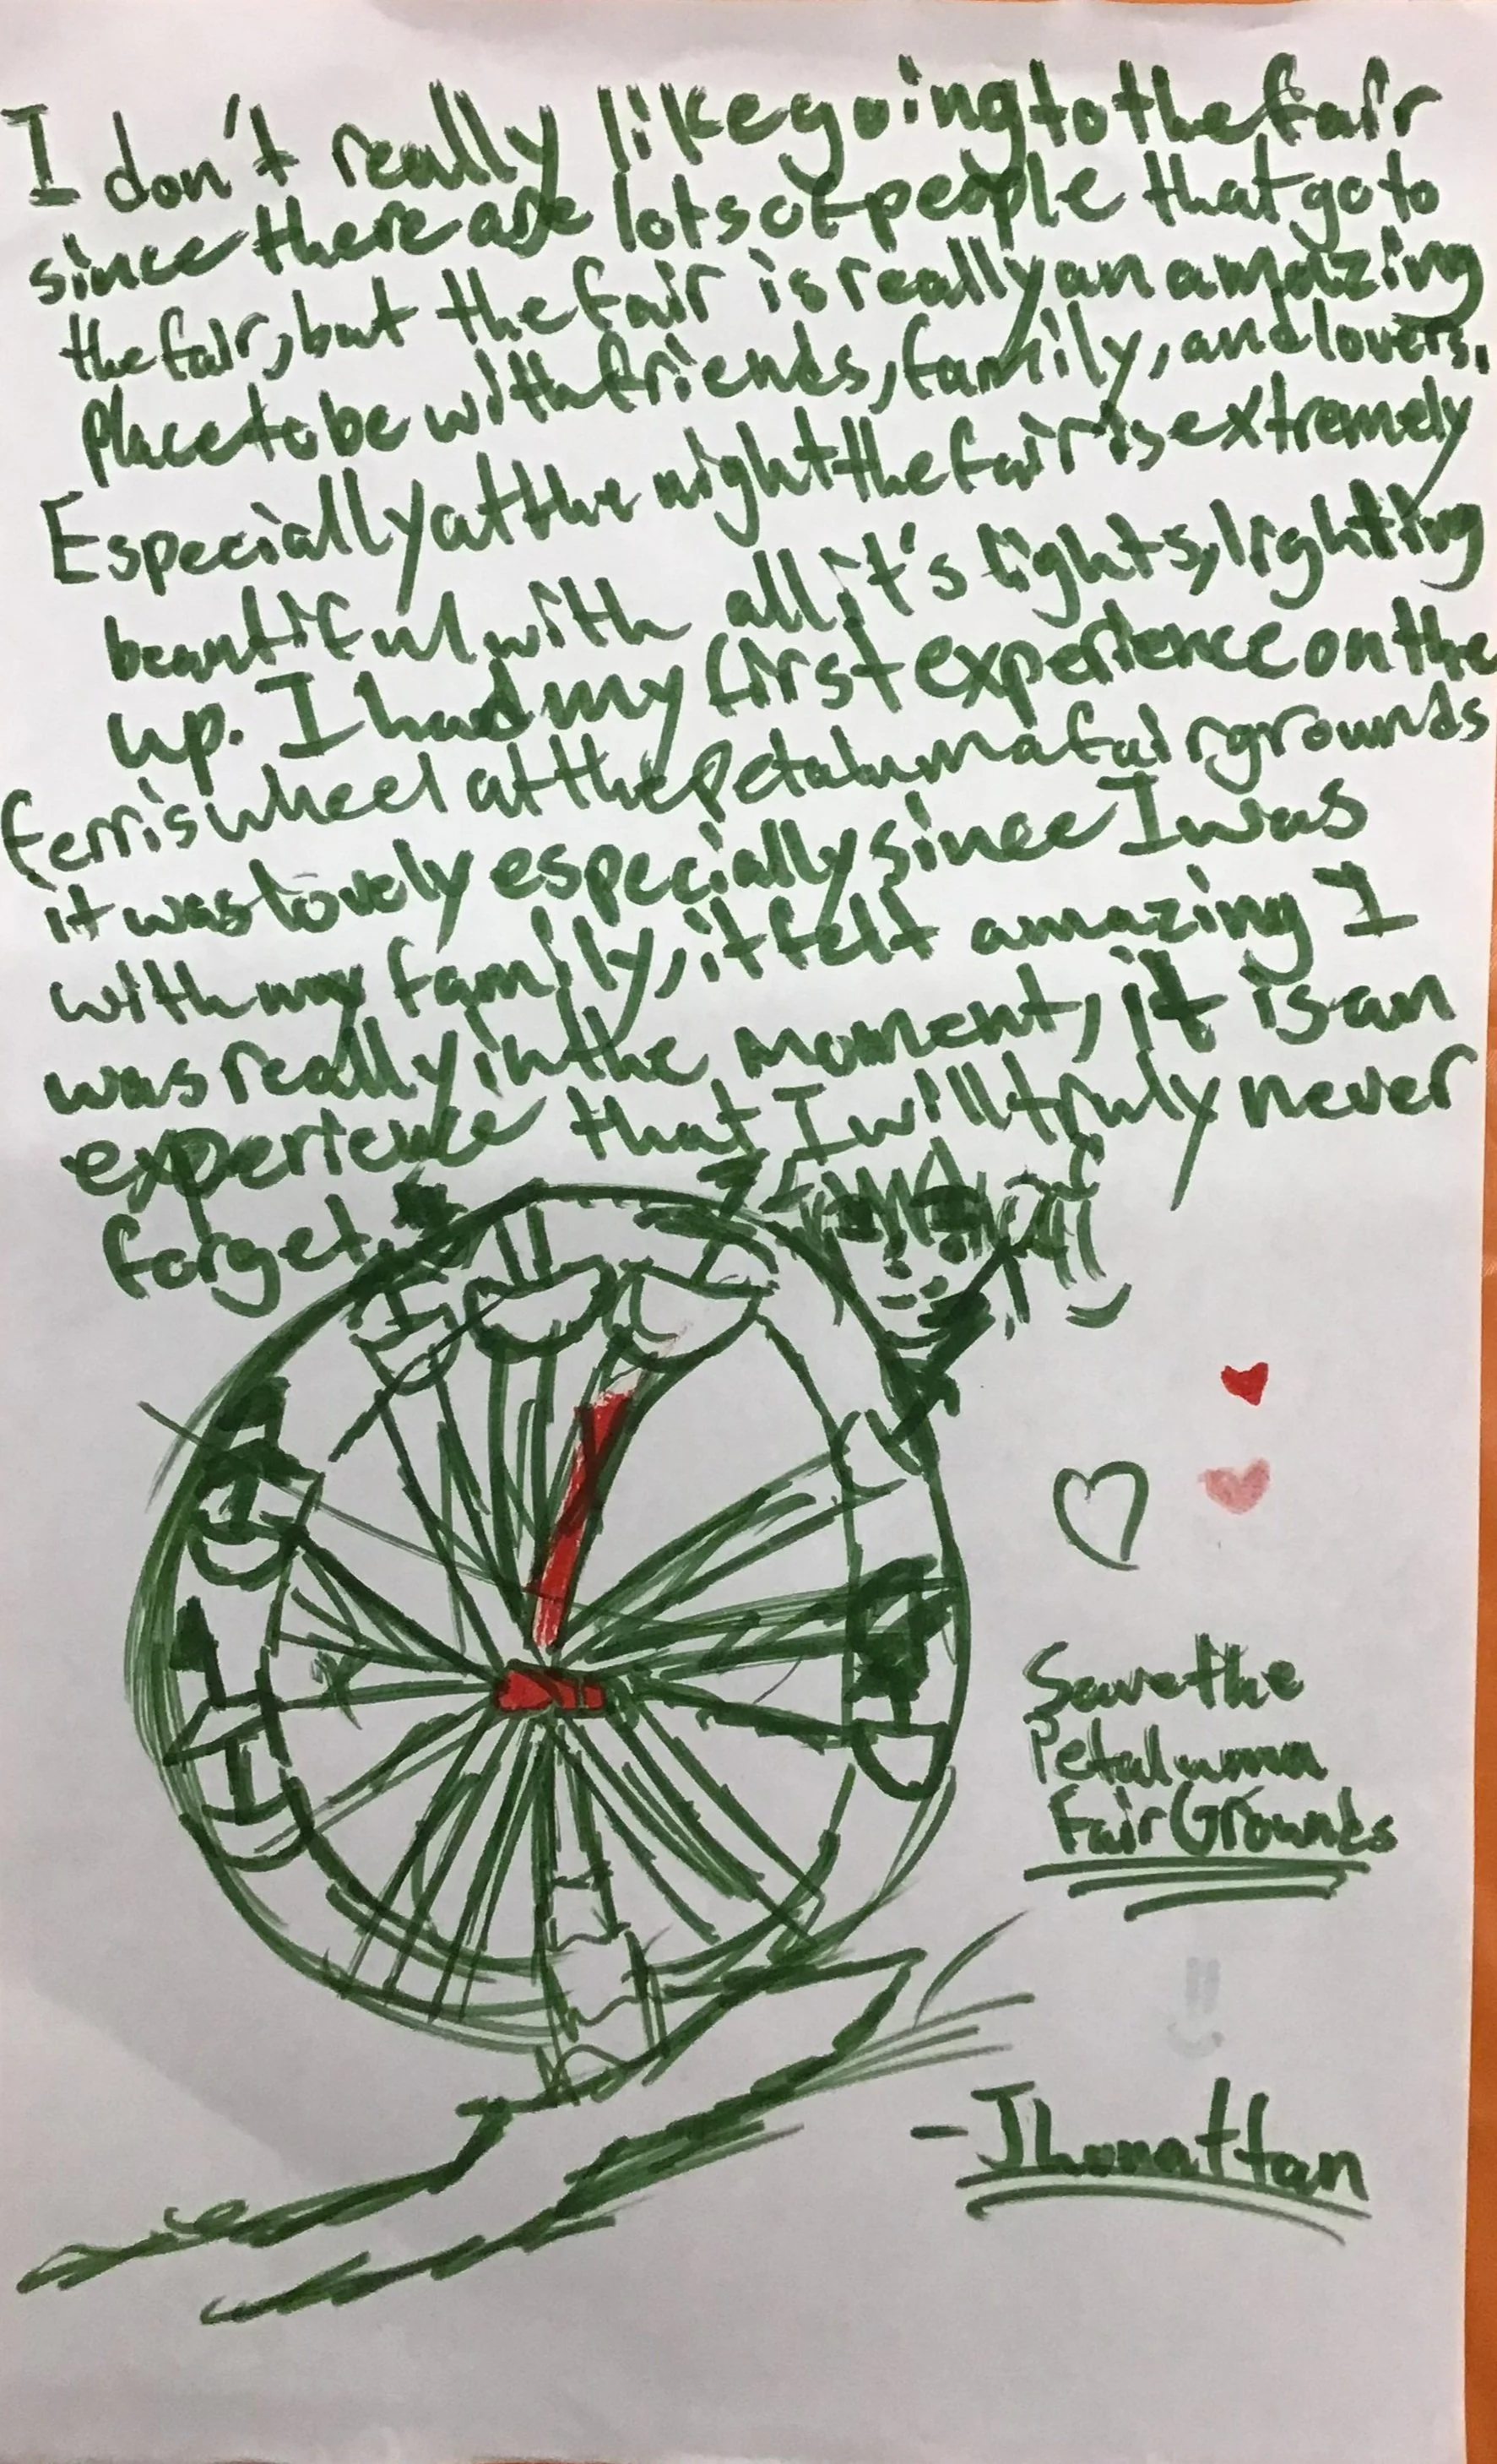 I don't really like going to the fair
since there are lots of people that go to
the fair, but the fair is really an amazing
place to be with friends, family, and lovers.
Especially at the night the fair is extremely
beautiful with all it's lights, lighting
up. I had my first experience on the
ferris wheel at the Petaluma fairgrounds
it was lovely especially since I was
with my family, it felt amazing I
was really in the moment, it is an
experience that I will truly never
forget.
Save the
Petaluma
Fair Grounds
-Jhonattan